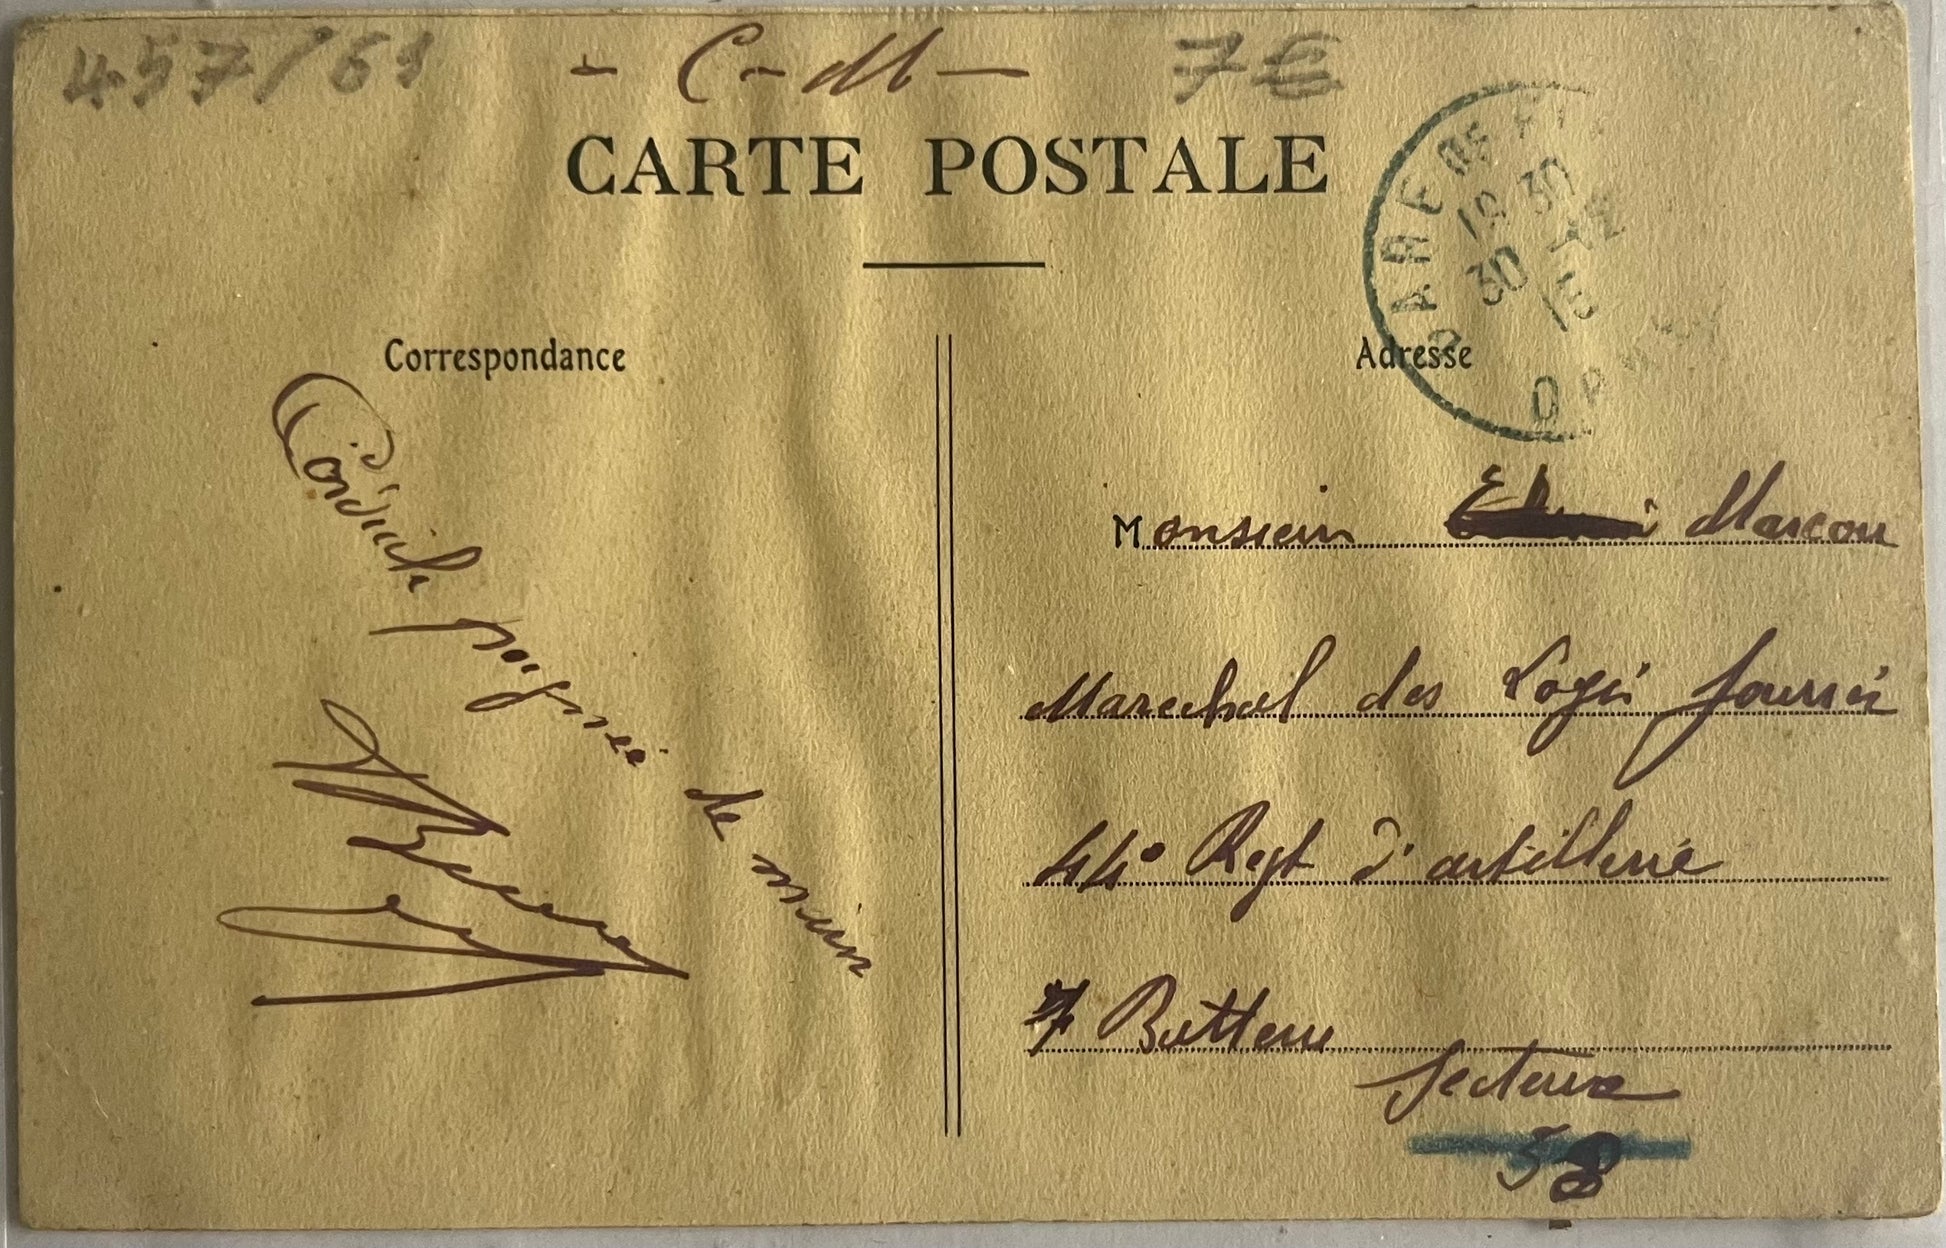 457/61
- C-M -
7€
CARTE POSTALE
GARE DE
18 30
30
15
ORNE
Correspondance
Adresse
Cordiale poignée de main
Monsieur Marcou
Marechal des Logis fourrier
44e Regt d'artillerie
7 Batterie
Secteur
58